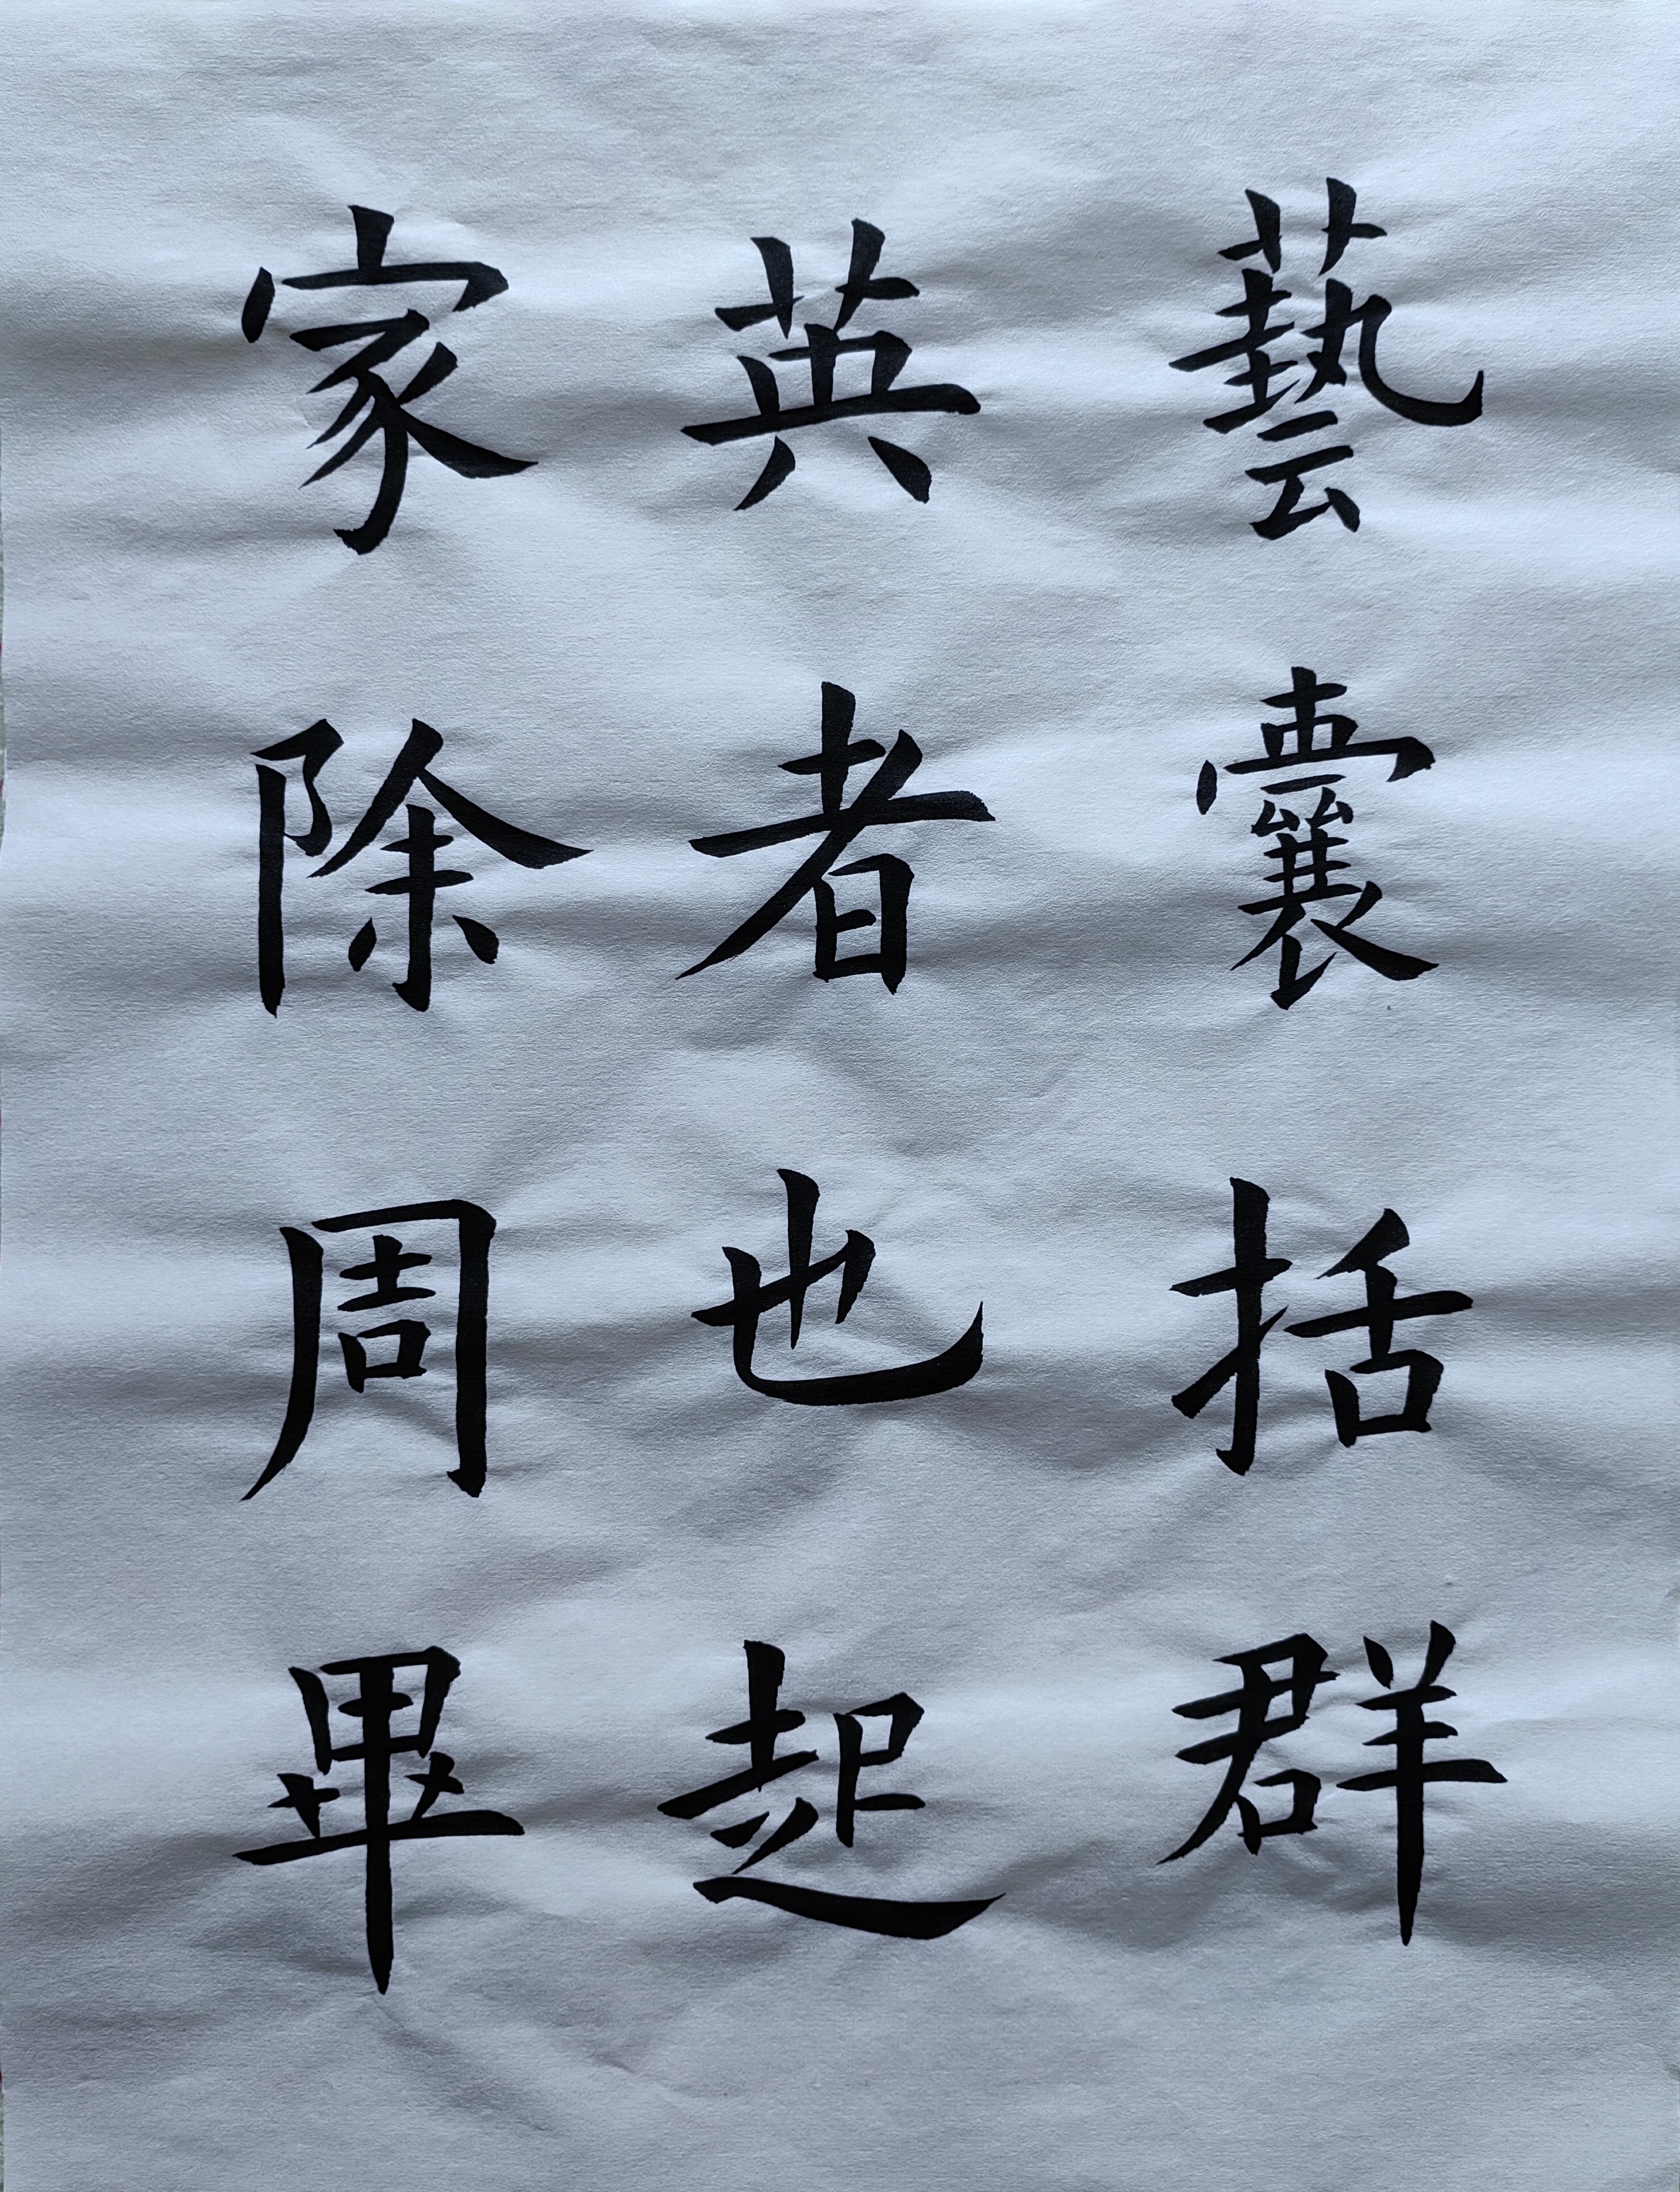 藝囊括群
英者也起
家除周畢